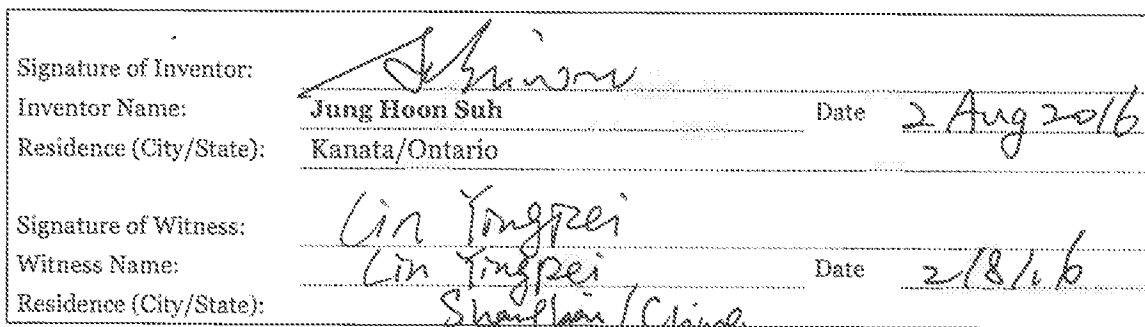 Signature of Inventor:
Inventor Name: Jung Hoon Suh Date 2 Aug 2016
Residence (City/State): Kanata/Ontario
Signature of Witness: Lin Yingpei
Witness Name: Lin Yingpei Date 2/8/16
Residence (City/State): Shanghai / China